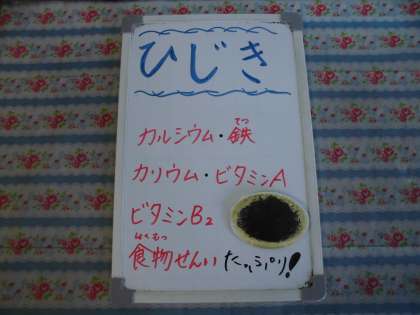 ひじき
カルシウム・鉄
てつ
カリウム・ビタミンA
ビタミンB₂
しょくもつ
食物せんい たっぷり!